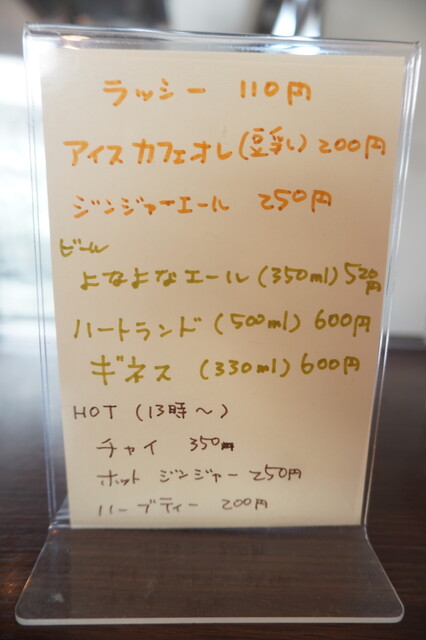 ラッシー 110円
アイスカフェオレ(豆乳) 200円
ジンジャーエール 250円
ビール
よなよなエール (350ml) 520円
ハートランド (500ml) 600円
ギネス (330ml) 600円
HOT (13時〜)
チャイ 350円
ホットジンジャー 250円
ハーブティー 200円